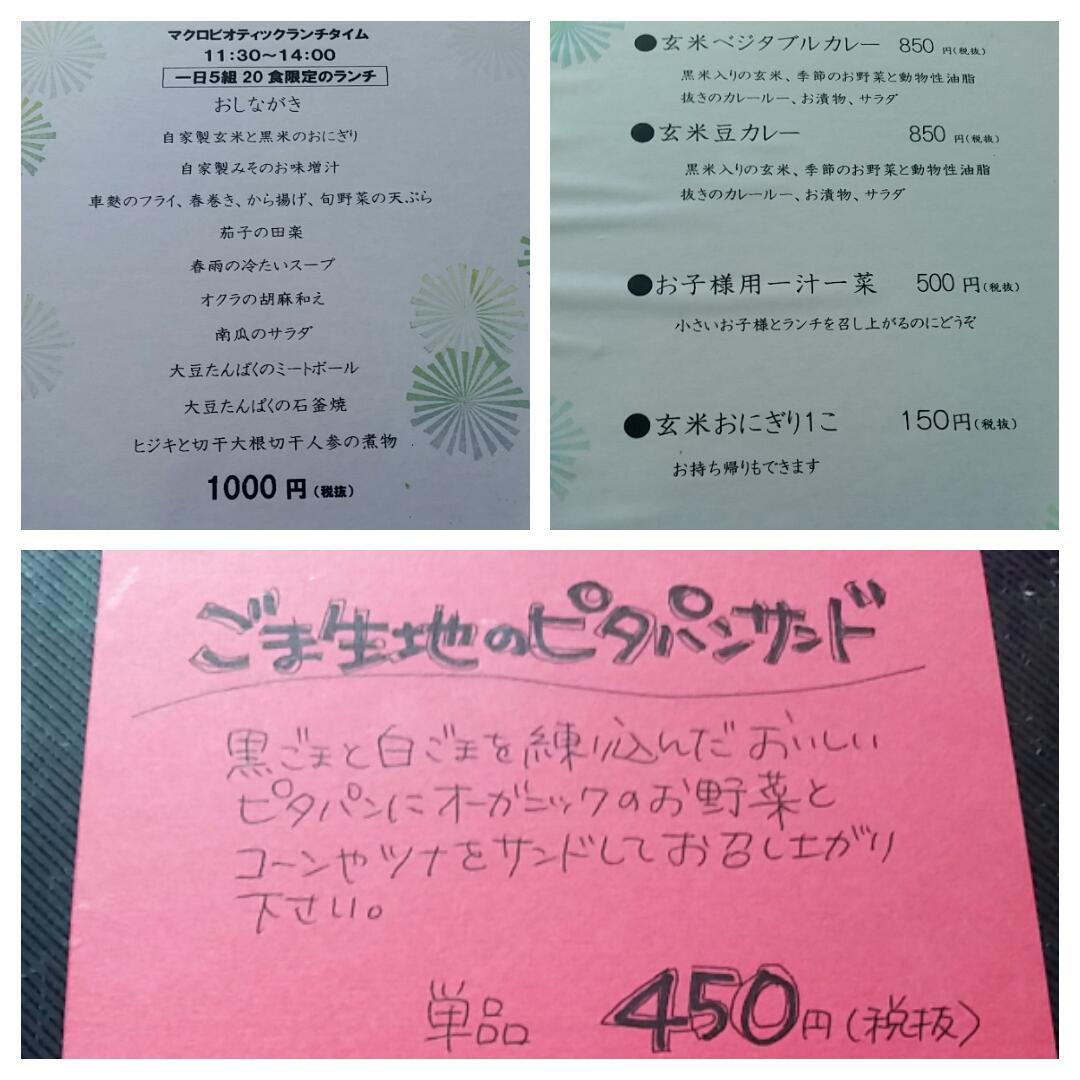 マクロビオティックランチタイム
11:30～14:00
一日5組 20 食限定のランチ
おしながき
自家製玄米と黒米のおにぎり
自家製みそのお味増汁
車麩のフライ、春巻き、から揚げ、旬野菜の天ぷら
茄子の田楽
春雨の冷たいスープ
オクラの胡麻和え
南瓜のサラダ
大豆たんぱくのミートボール
大豆たんぱくの石釜焼
ヒジキと切干大根切干人参の煮物
1000 円（税抜）
●玄米ベジタブルカレー 850 円（税抜）
黒米入りの玄米、季節のお野菜と動物性油脂
抜きのカレールー、お漬物、サラダ
●玄米豆カレー 850 円（税抜）
黒米入りの玄米、季節のお野菜と動物性油脂
抜きのカレールー、お漬物、サラダ
●お子様用一汁一菜 500 円（税抜）
小さいお子様とランチを召し上がるのにどうぞ
●玄米おにぎり1こ 150円（税抜）
お持ち帰りもできます
ごま生地のピタパンサンド
黒ごまと白ごまを練り込んだおいしい
ピタパンにオーガニックのお野菜と
コーンやツナをサンドしてお召し上がり
下さい。
単品 450円（税抜）